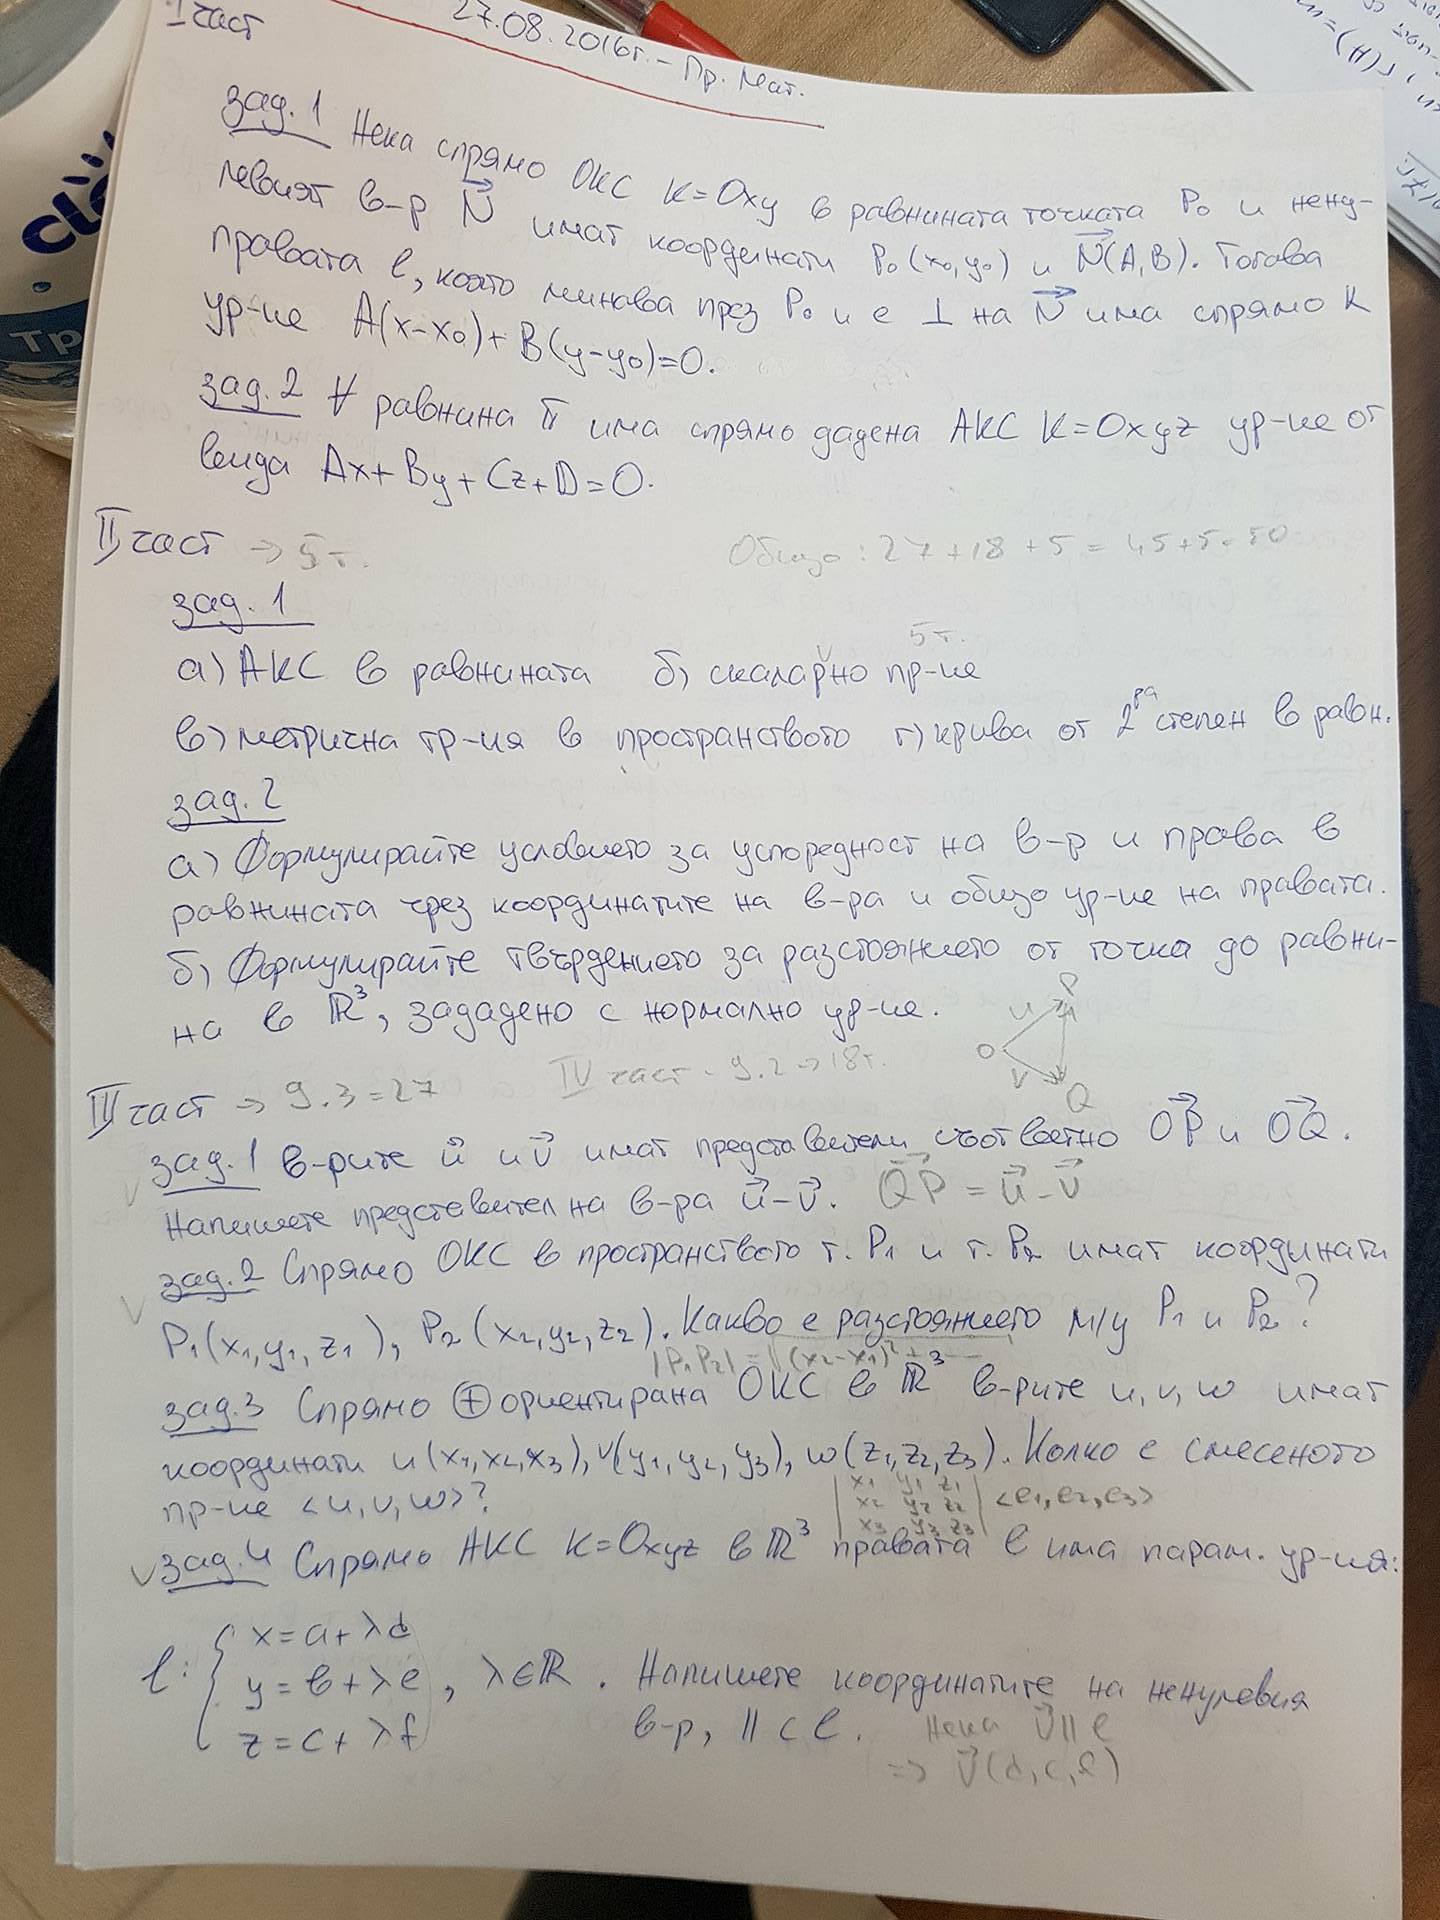 I част
27.08.2016г. - Пр. Мат.
зад. 1 Нека спрямо ОКС K=Oxy в равнината точката P₀ и нену-
левият в-р N⃗ имат координати P₀(x₀,y₀) и N⃗(A,B). Тогава
правата l, която минава през P₀ и е ⊥ на N⃗ има спрямо K
ур-ие A(x-x₀)+B(y-y₀)=0.
зад. 2 ∀ равнина π има спрямо дадена АКС K=Oxyz ур-ие от
вида Ax+By+Cz+D=0.
II част → 5т.
Общо: 27+18+5=45+5=50
зад. 1
5т.
а) АКС в равнината б) скаларно пр-ие
в) метрична тр-ия в пространството г) крива от 2ра степен в равн.
зад. 2
а) Формулирайте условието за успоредност на в-р и права в
равнината чрез координатите на в-ра и общо ур-ие на правата.
б) Формулирайте твърдението за разстоянието от точка до равни-
на в ℝ³, зададено с нормално ур-ие.
P
u
O
v
Q
IV част - 9.2→18т.
III част → 9.3=27
зад. 1 в-рите u⃗ и v⃗ имат представители съответно OP⃗ и OQ⃗.
Напишете представител на в-ра u⃗-v⃗. QP⃗ = u⃗-v⃗
зад. 2 Спрямо ОКС в пространството т. P₁ и т. P₂ имат координати
P₁(x₁,y₁,z₁), P₂(x₂,y₂,z₂). Какво е разстоянието м/у P₁ и P₂?
|P₁P₂| = √(x₂-x₁)²+...
зад. 3 Спрямо ⊕ ориентирана ОКС в ℝ³ в-рите u,v,w имат
координати u(x₁,x₂,x₃), v(y₁,y₂,y₃), w(z₁,z₂,z₃). Колко е смесеното
пр-ие <u,v,w>?
|x₁ y₁ z₁|
|x₂ y₂ z₂| <e₁,e₂,e₃>
|x₃ y₃ z₃|
зад. 4 Спрямо АКС K=Oxyz в ℝ³ правата l има парам. ур-ия:
x=a+λd
l: y=b+λe, λ∈ℝ. Напишете координатите на ненулевия
z=c+λf в-р, || с l. Нека v⃗ || l
=> v⃗(d,e,f)
clea
Тр